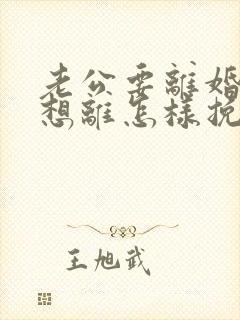 老公要離婚
想離怎樣挽
王旭武